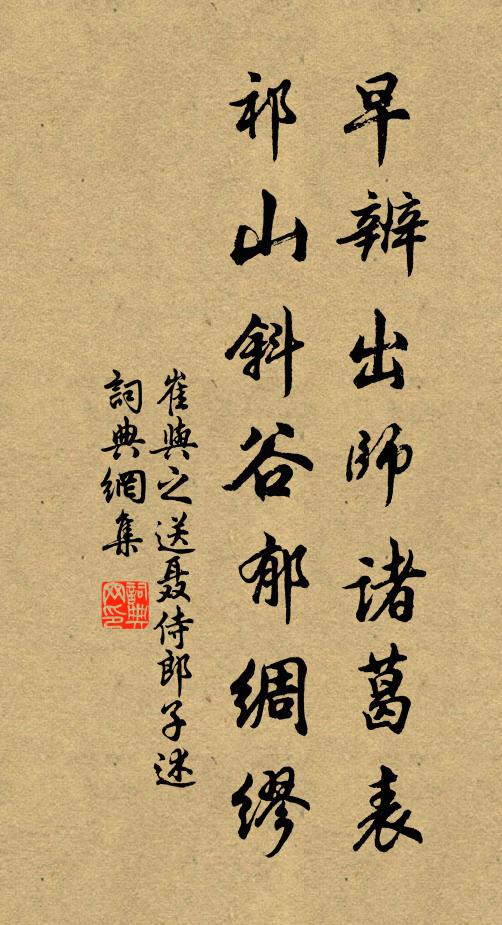 早辨出師諸葛表
祁山斜谷郁綢繆
崔與之送聂侍郎子述
詞典網集
詞典
网印